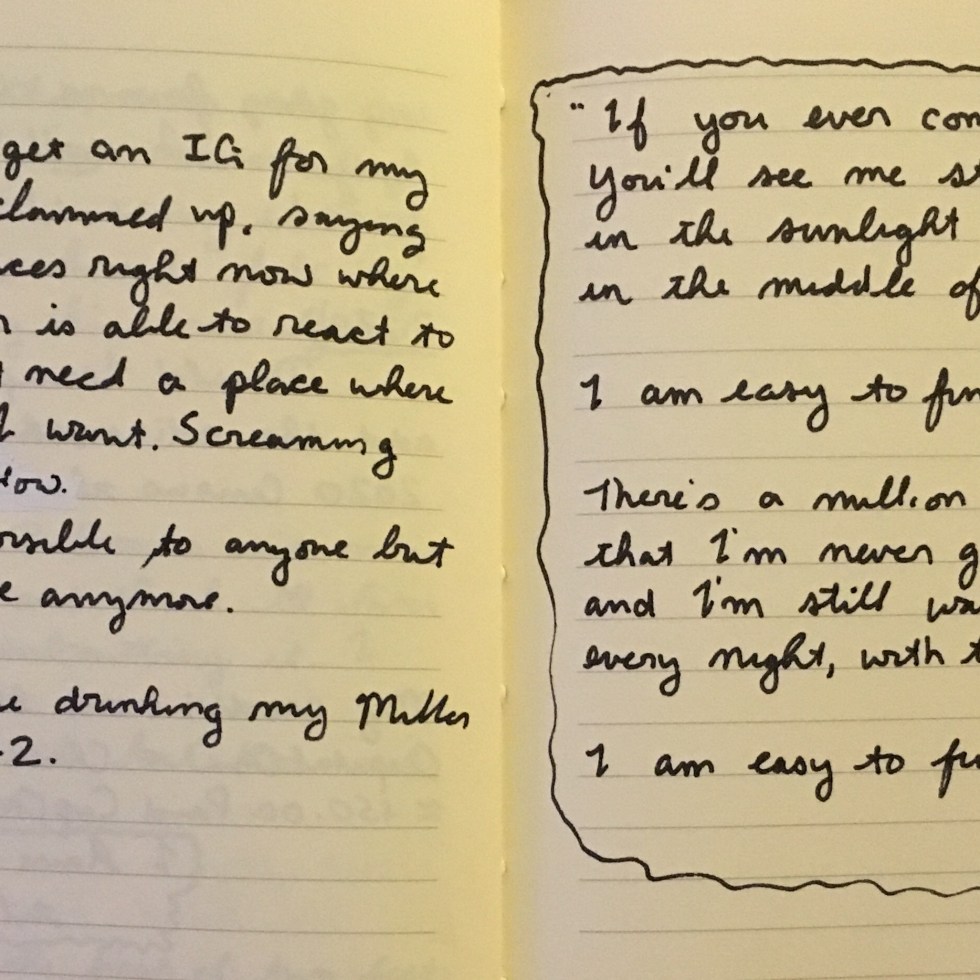 get an IG for my
clammed up, saying
right now where
is able to react to
need a place where
want. Screaming
to anyone but
anymore.
drinking my Miller
-2.
"If you ever com
You'll see me st
in the sunlight
in the middle of
I am easy to fin
There's a million
that I'm never g
and I'm still wa
every night, with t
I am easy to fi